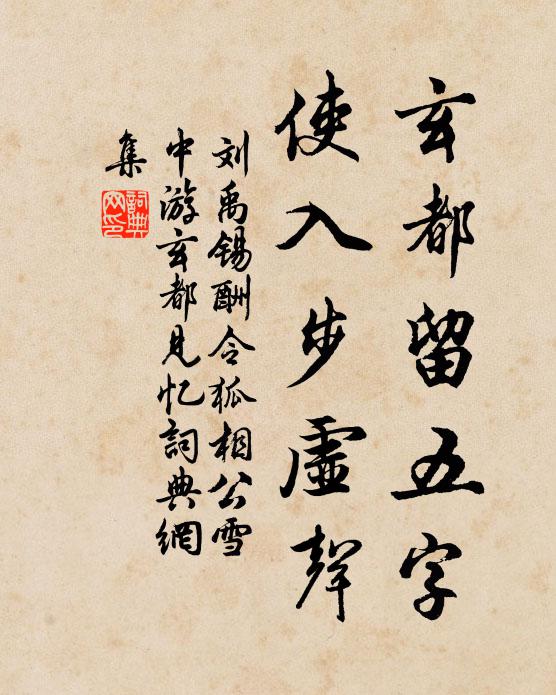 玄都留五字
使入步虛聲
刘禹锡酬令狐相公雪
中游玄都见忆詞典網
集
詞典
网印